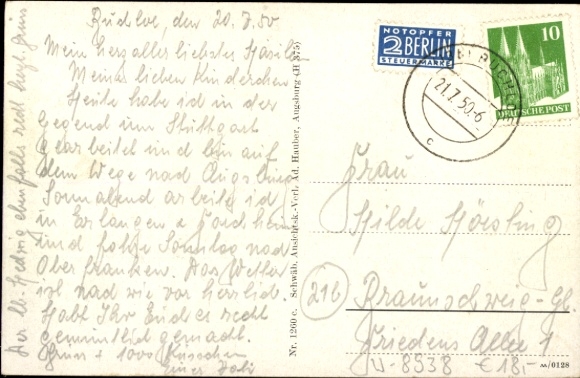 Buchloe, den 20.7.50
Mein herzallerliebstes
Meine lieben Kinderchen
Heute habe ich in der
Gegend um Stuttgart
gearbeitet und bin auf
dem Wege nach Augsburg
Sonnabend arbeite ich
in Erlangen + Forchheim
und fahre Sonntag nach
Oberfranken. Das Wetter
ist nach wie vor herrlich.
Habt Ihr Euch es recht
gemütlich gemacht.
Gruss + 1000 Küsschen
Euer Vati
Der lb. Hedwig ebenfalls recht herzl. Grüss
Nr. 1260 c. Schwäb. Ansichtsk.-Verl. Ad. Hauber, Augsburg (H 375)
NOTOPFER
2 BERLIN
STEUERMARKE
10
DEUTSCHE POST
21.7.50.-6
c
Frau
Hilde
21b
Braunschweig-Gl.
Friedens Allee 1
W-8538 €18,-
M/0128